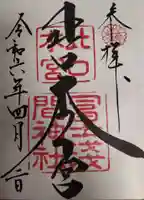 奉拝
北口本宮
冨士浅
間神社
北口本宮
令和六年四月二日